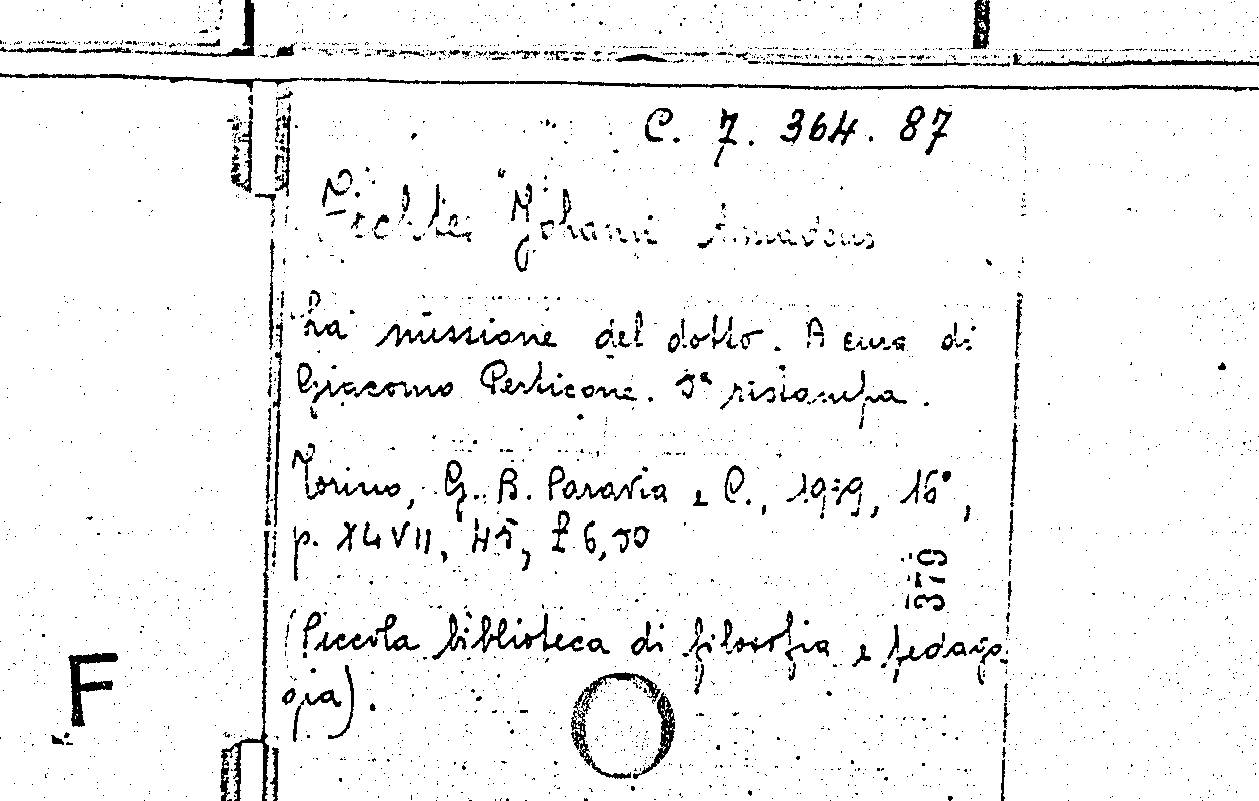 C. 7. 364. 87
Fichte Johann Amadeus
La missione del dotto. A cura di
Giacomo Perticone. 5ª ristampa.
Torino, G. B. Paravia e C., 1939, 16°,
p. XLVII, 45, £ 6,50
379
(Piccola biblioteca di filosofia e pedago-
gia).
F